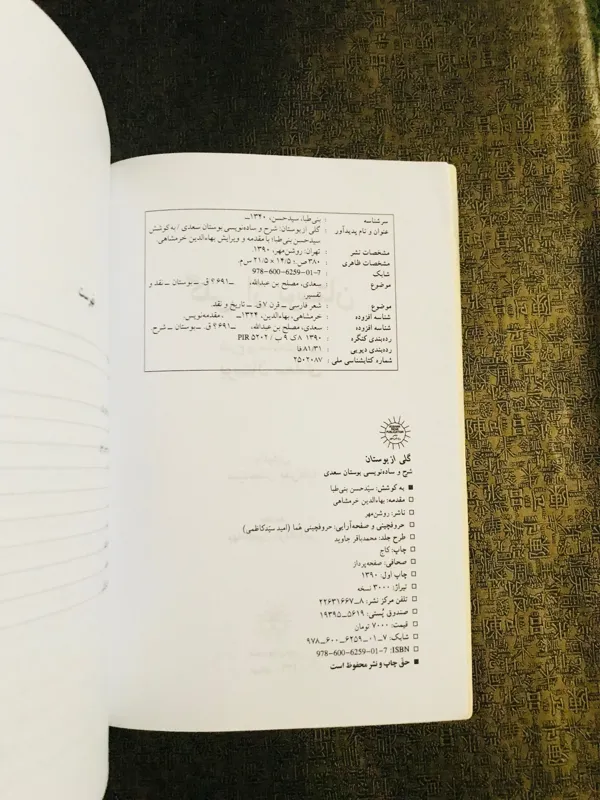 سرشناسه : بنی‌طبا، سیدحسن، ۱۳۴۰ـ
عنوان و نام پدیدآور : گلی از بوستان: شرح و ساده‌نویسی بوستان سعدی / به‌کوشش
سیدحسن بنی‌طبا؛ با مقدمه و ویرایش بهاءالدین خرمشاهی.
مشخصات نشر : تهران: روشن‌مهر، ۱۳۹۰
مشخصات ظاهری : ۳۸۰ ص.؛ ۱۴/۵ × ۲۱/۵ س‌م.
شابک : 978-600-6259-01-7
موضوع : سعدی، مصلح بن عبدالله، ـ۶۹۱؟ ق. ـ بوستان ـ نقد و
تفسیر.
موضوع : شعر فارسی ـ قرن ۷ ق. ـ تاریخ و نقد
شناسه افزوده : خرمشاهی، بهاءالدین، ۱۳۲۴ـ ، مقدمه‌نویس.
شناسه افزوده : سعدی، مصلح بن عبدالله، ـ۶۹۱؟ ق. ـ بوستان ـ شرح.
رده‌بندی کنگره : ۱۳۹۰ ۸ک ۹ ب / ۵۲۰۲ PIR
رده‌بندی دیویی : ۸۱/۳۱ فا
شماره کتابشناسی ملی : ۲۵۰۲۰۸۷
گلی از بوستان
شرح و ساده‌نویسی بوستان سعدی
به کوشش: سیّدحسن بنی‌طبا
مقدمه: بهاءالدین خرمشاهی
ناشر: روشن‌مهر
حروفچینی و صفحه‌آرایی: حروفچینی هُما (امید سیّدکاظمی)
طرح جلد: محمدباقر جاوید
چاپ: کاج
صحافی: صفحه‌پرداز
چاپ اول: ۱۳۹۰
تیراژ: ۳۰۰۰ نسخه
تلفن مرکز نشر: ۸ـ۲۲۶۳۱۶۶۷
صندوق پُستی: ۵۶۱۹ـ۱۹۳۹۵
قیمت: ۷۰۰۰ تومان
شابک: ۷ـ۰۱ـ۶۲۵۹ـ۶۰۰ـ۹۷۸
ISBN: 978-600-6259-01-7
حق چاپ و نشر محفوظ است